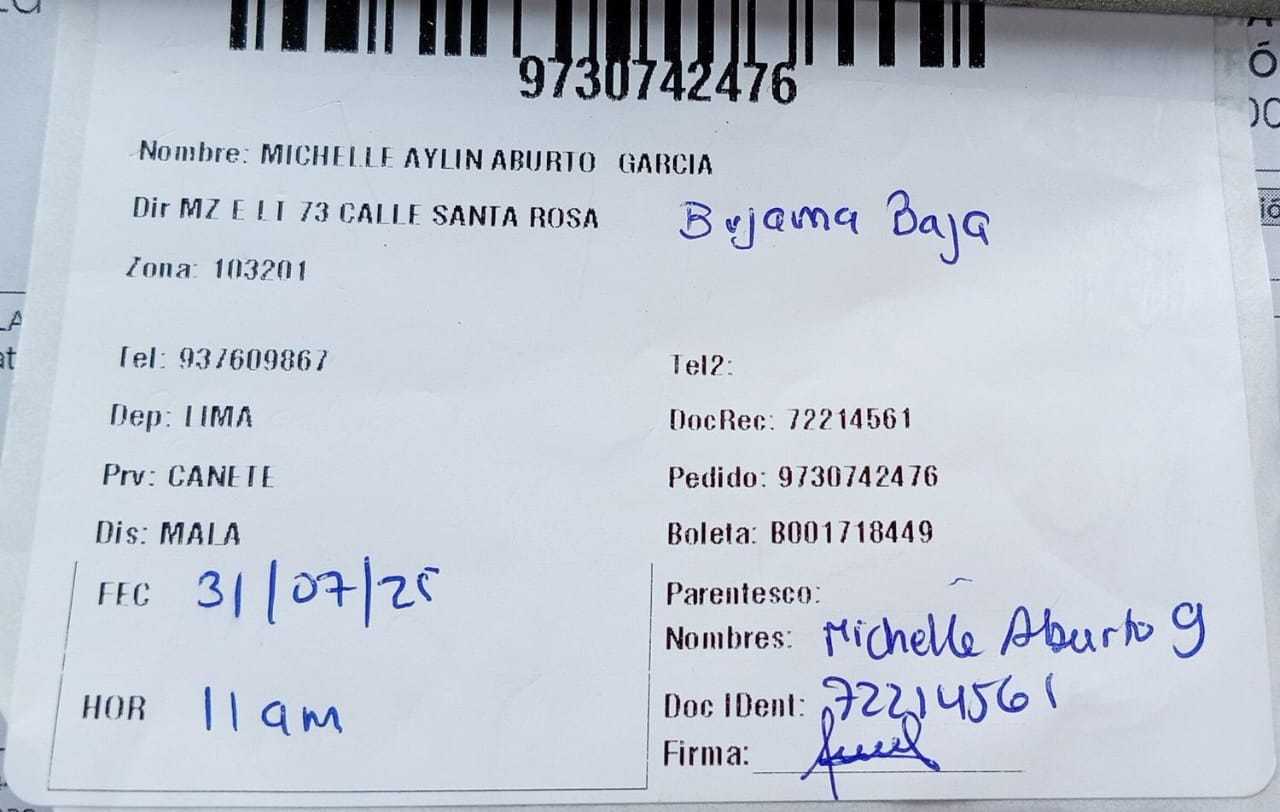 9730742476
Nombre: MICHELLE AYLIN ABURTO GARCIA
Dir MZ E LT 73 CALLE SANTA ROSA Bujama Baja
Zona: 103201
Tel: 937609867 Tel2:
Dep: LIMA DocRec: 72214561
Prv: CANETE Pedido: 9730742476
Dis: MALA Boleta: B001718449
FEC 31/07/25 Parentesco:
Nombres: Michelle Aburto G
HOR 11 am Doc IDent: 72214561
Firma: